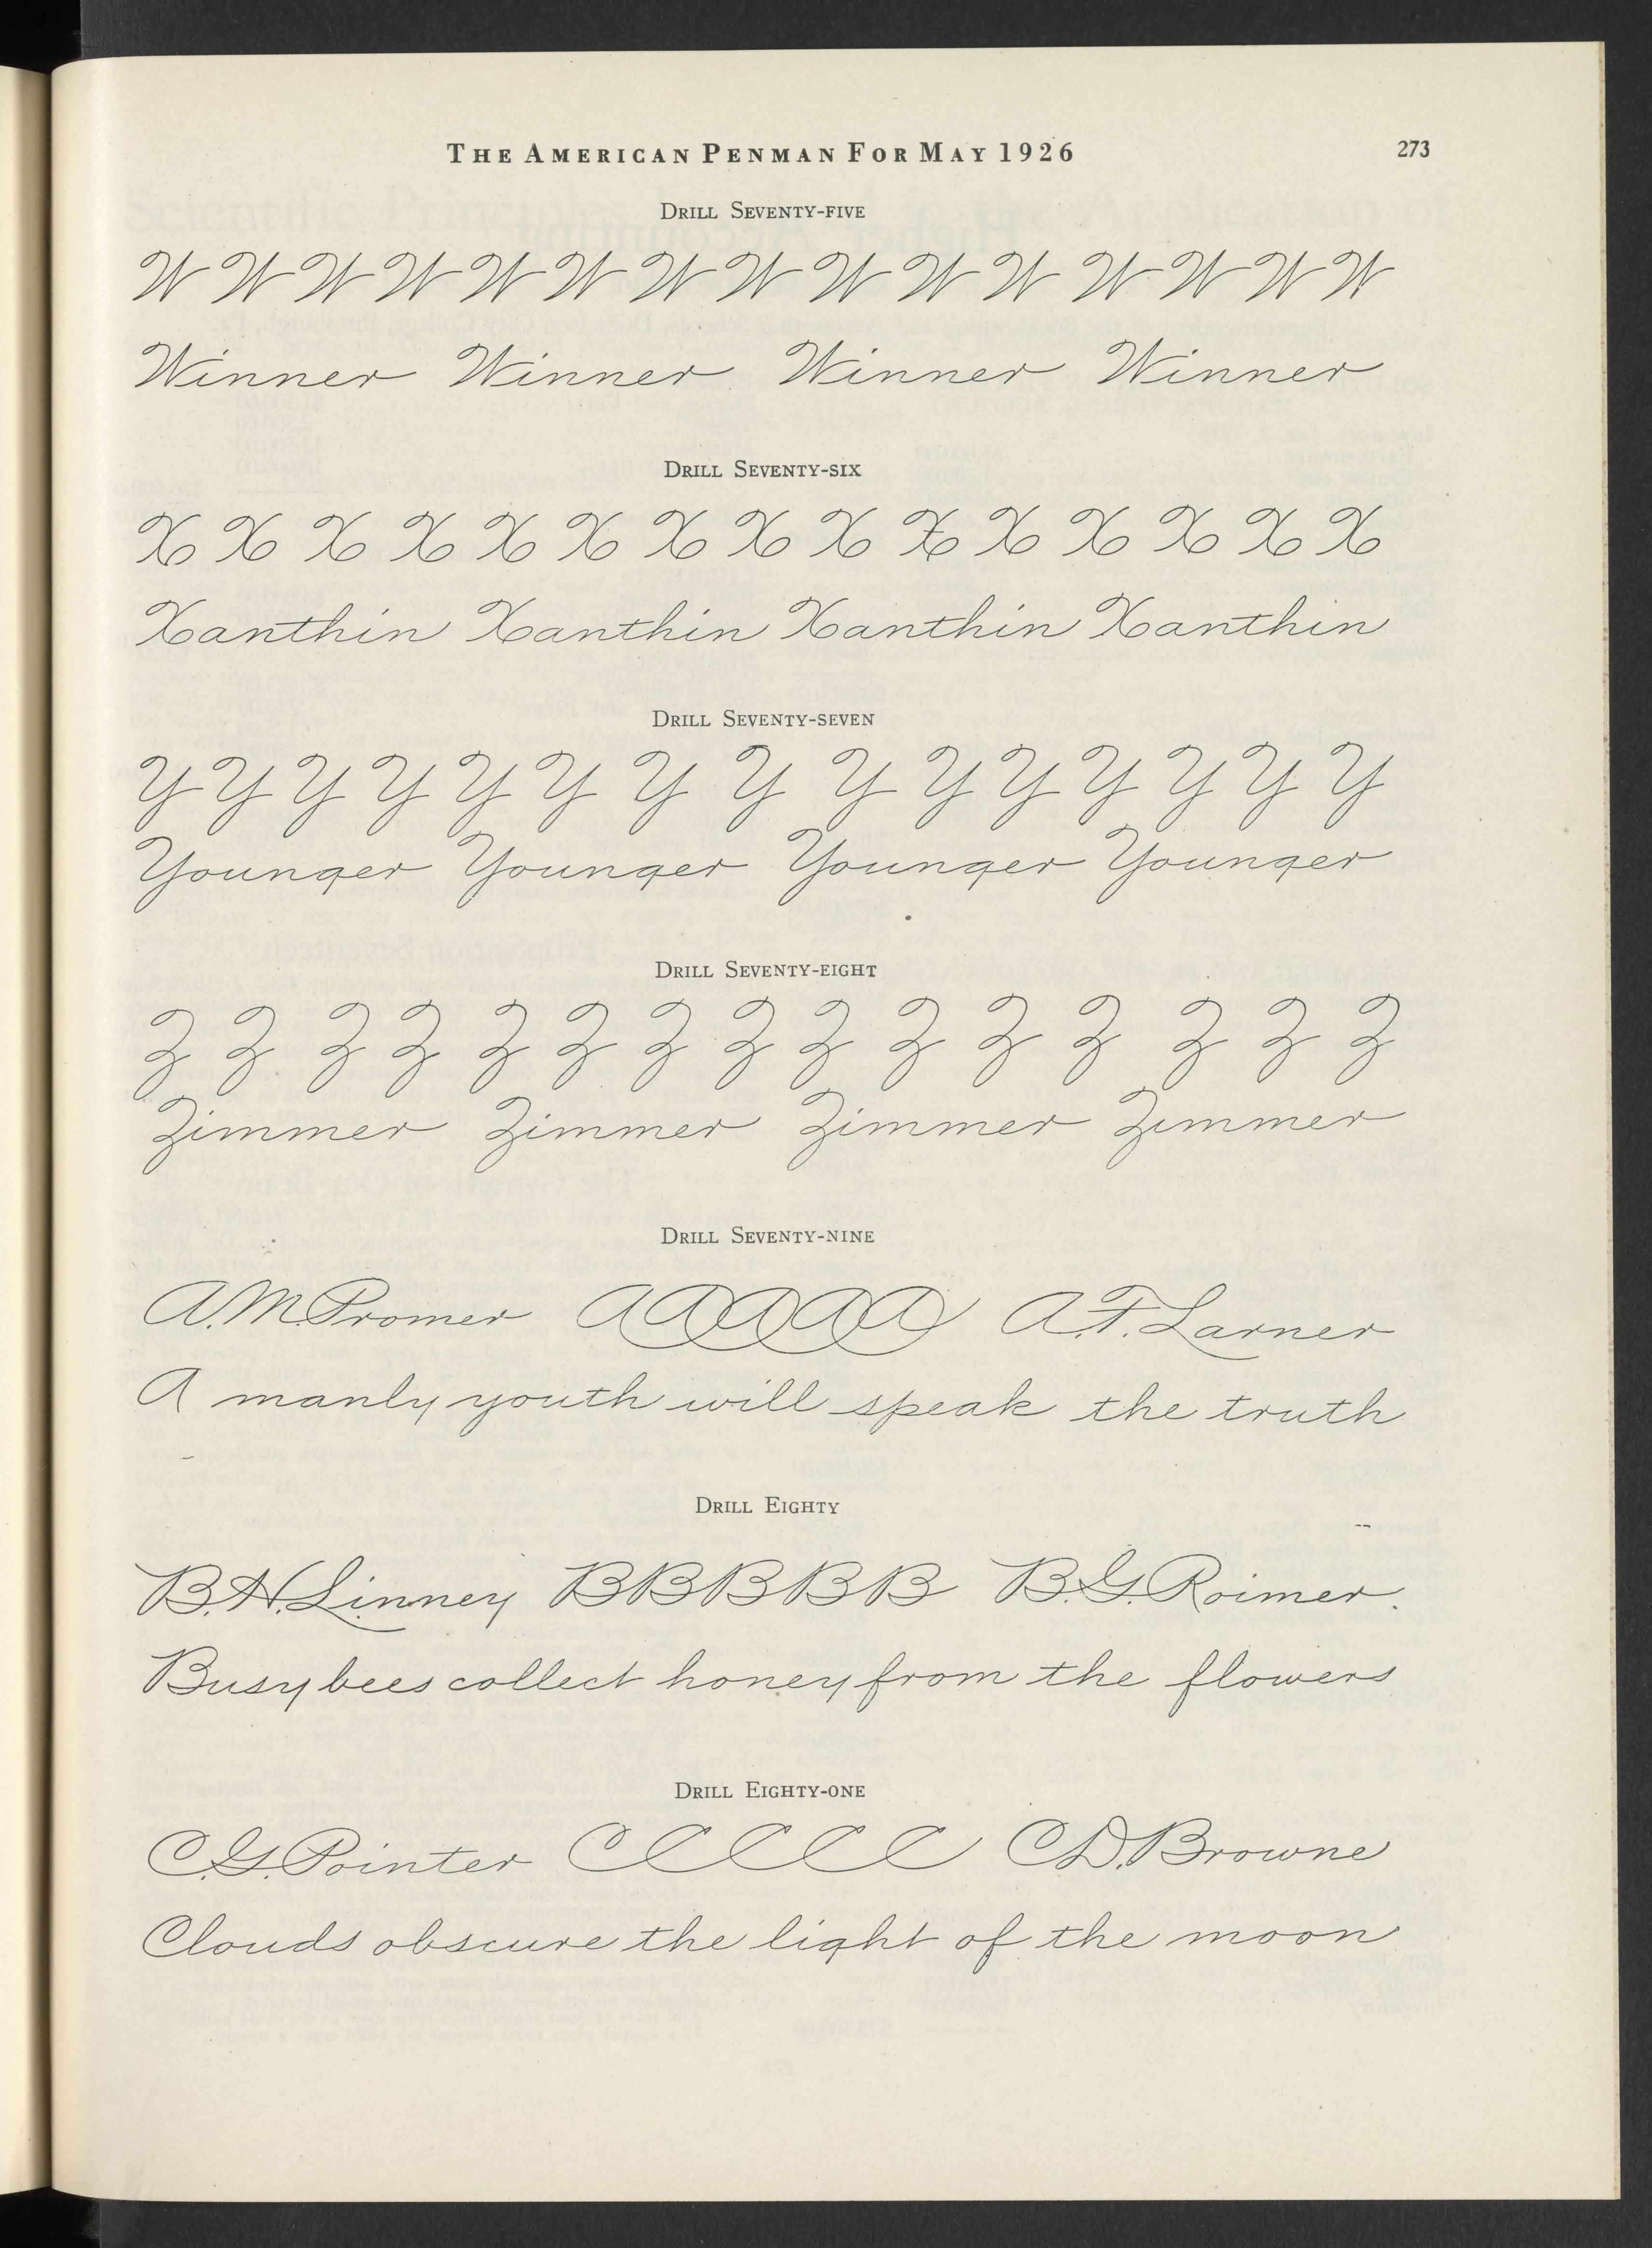 THE AMERICAN PENMAN FOR MAY 1926 273
DRILL SEVENTY-FIVE
W W W W W W W W W W W W W W W
Winner Winner Winner Winner
DRILL SEVENTY-SIX
X X X X X X X X X X X X X X X
Xanthin Xanthin Xanthin Xanthin
DRILL SEVENTY-SEVEN
Y Y Y Y Y Y Y Y Y Y Y Y Y Y Y
Younger Younger Younger Younger
DRILL SEVENTY-EIGHT
Z Z Z Z Z Z Z Z Z Z Z Z Z Z Z
Zimmer Zimmer Zimmer Zimmer
DRILL SEVENTY-NINE
A. M. Promer A A A A A A. F. Larner
A manly youth will speak the truth
DRILL EIGHTY
B. H. Linney B B B B B B. G. Roimer.
Busy bees collect honey from the flowers
DRILL EIGHTY-ONE
C. G. Pointer C C C C C C D. Browne
Clouds obscure the light of the moon